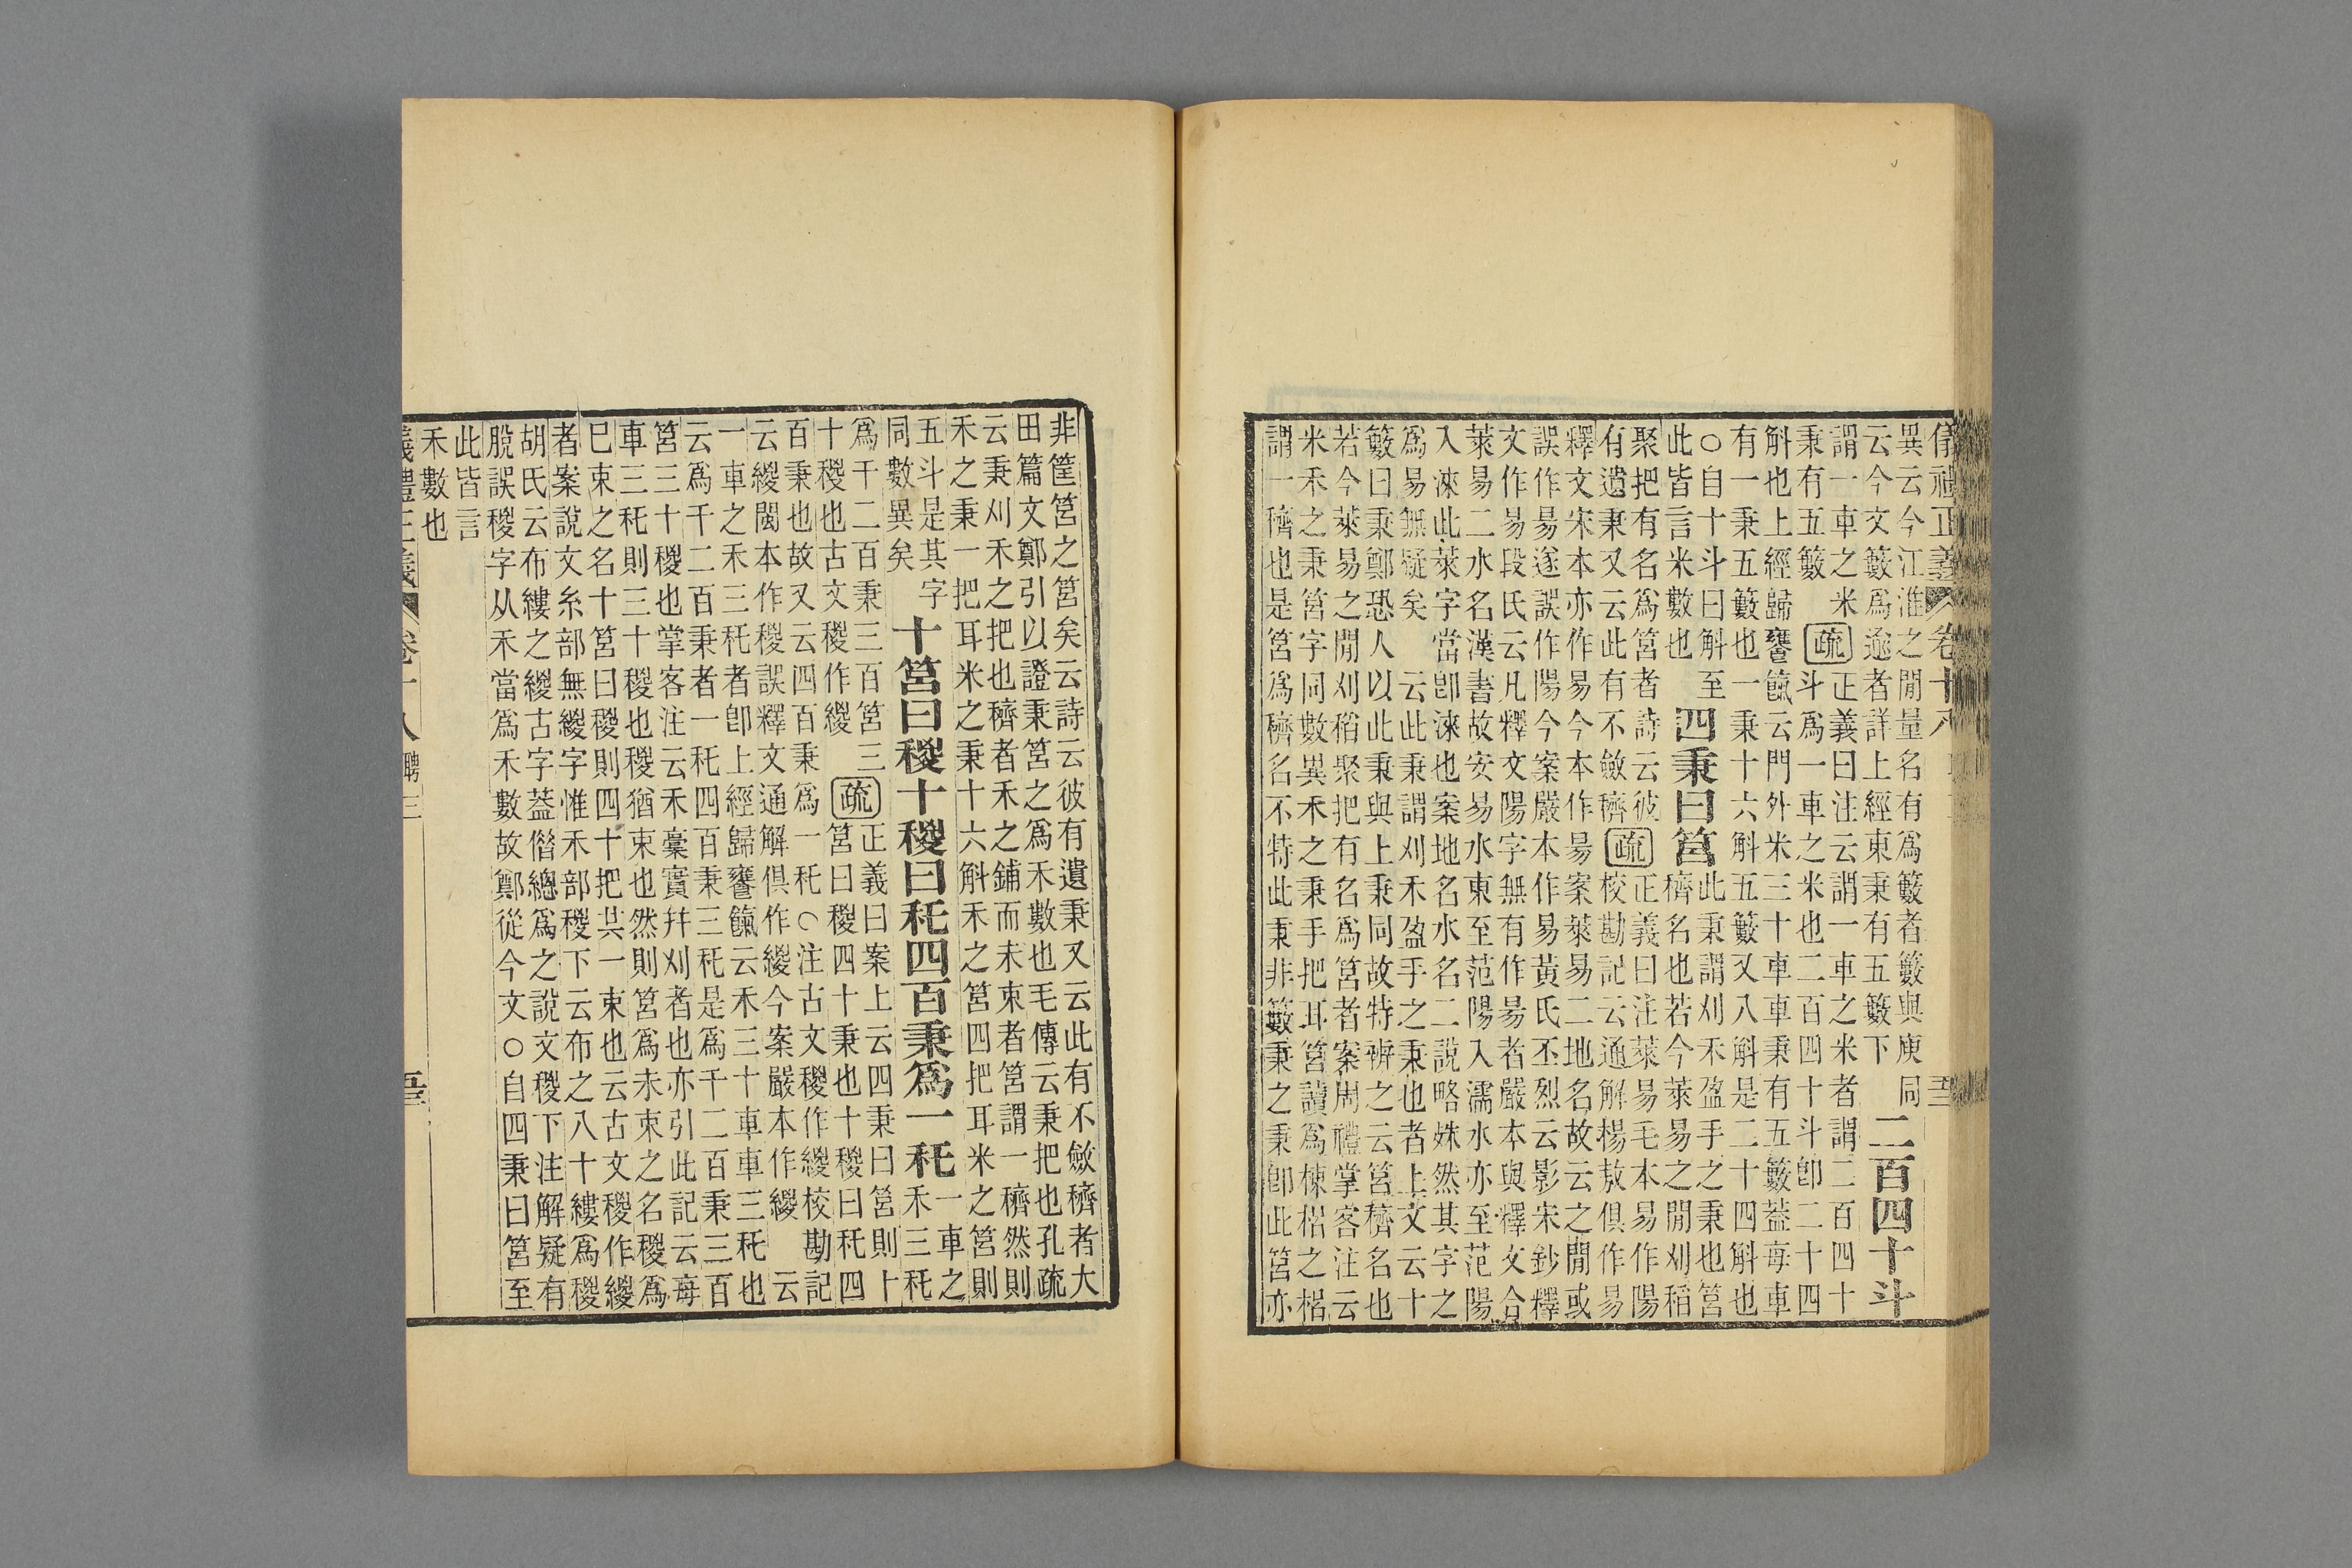 儀禮正義 卷十八
異云今江淮之閒量名有爲籔者籔與庾同
云今文籔爲逾者詳上經東秉有五籔下
二百四十斗
謂一車之米
秉有五籔
疏
正義曰注云謂一車之米者謂二百四十
斗爲一車之米也二百四十斗卽二十四
斛也上經歸饔餼云門外米三十車車秉有五籔葢每車
有一秉五籔也一秉十六斛五籔又八斛是二十四斛也
○自十斗曰斛至
此皆言米數也
四秉曰筥
此秉謂刈禾盈手之秉也筥
穧名也若今萊易之閒刈稻
聚把有名爲筥者詩云彼
有遺秉又云此有不斂穧
疏
正義曰注萊易毛本易作陽
校勘記云通解楊敖俱作易
釋文宋本亦作易今本作昜案萊易二地名故云之閒或
誤作昜遂誤作陽今案嚴本作易黃氏丕烈云影宋鈔釋
文作易段氏云凡釋文陽字無有作昜者嚴本與釋文合
萊易二水名漢書故安易水東至范陽入濡水亦至范陽
入淶此萊字當卽淶也案地名水名二說略姝然其字之
爲易無疑矣 云此秉謂刈禾盈手之秉也者上文云十
籔曰秉鄭恐人以此秉與上秉同故特辨之云筥穧名也
若今萊易之閒刈稻聚把有名爲筥者案周禮掌客注云
米禾之秉筥字同數異禾之秉手把耳筥讀爲棟梠之梠
謂一穧也是筥爲穧名不特此秉非籔秉之秉卽此筥亦
非筐筥之筥矣云詩云彼有遺秉又云此有不斂穧者大
田篇文鄭引以證秉筥之爲禾數也毛傳云秉把也孔疏
云秉刈禾之把也穧者禾之鋪而未束者筥謂一穧然則
禾之秉一把耳米之秉十六斛禾之筥四把耳米之筥則
五斗是其字
同數異矣
十筥曰稯十稯曰秅四百秉爲一秅
一車之
禾三秅
爲千二百秉三百筥三
十稯也古文稯作緵
疏
正義曰案上云四秉曰筥則十
筥曰稯四十秉也十稯曰秅四
百秉也故又云四百秉爲一秅○注古文稯作緵校勘記
云緵閩本作稯誤釋文通解俱作緵今案嚴本作緵 云
一車之禾三秅者卽上經歸饔餼云禾三十車車三秅也
云爲千二百秉者一秅四百秉三秅是爲千二百秉三百
筥三十稯也掌客注云禾稾實幷刈者也亦引此記云每
車三秅則三十稯也稯猶束也然則筥爲未束之名稯爲
巳束之名十筥曰稯則四十把共一束也云古文稯作緵
者案說文糸部無緵字惟禾部稯下云布之八十縷爲稯
胡氏云布縷之緵古字葢偺總爲之說文稯下注解疑有
脫誤稯字从禾當爲禾數故鄭從今文○自四秉曰筥至
此皆言
禾數也
義禮正義 卷十八 聘三